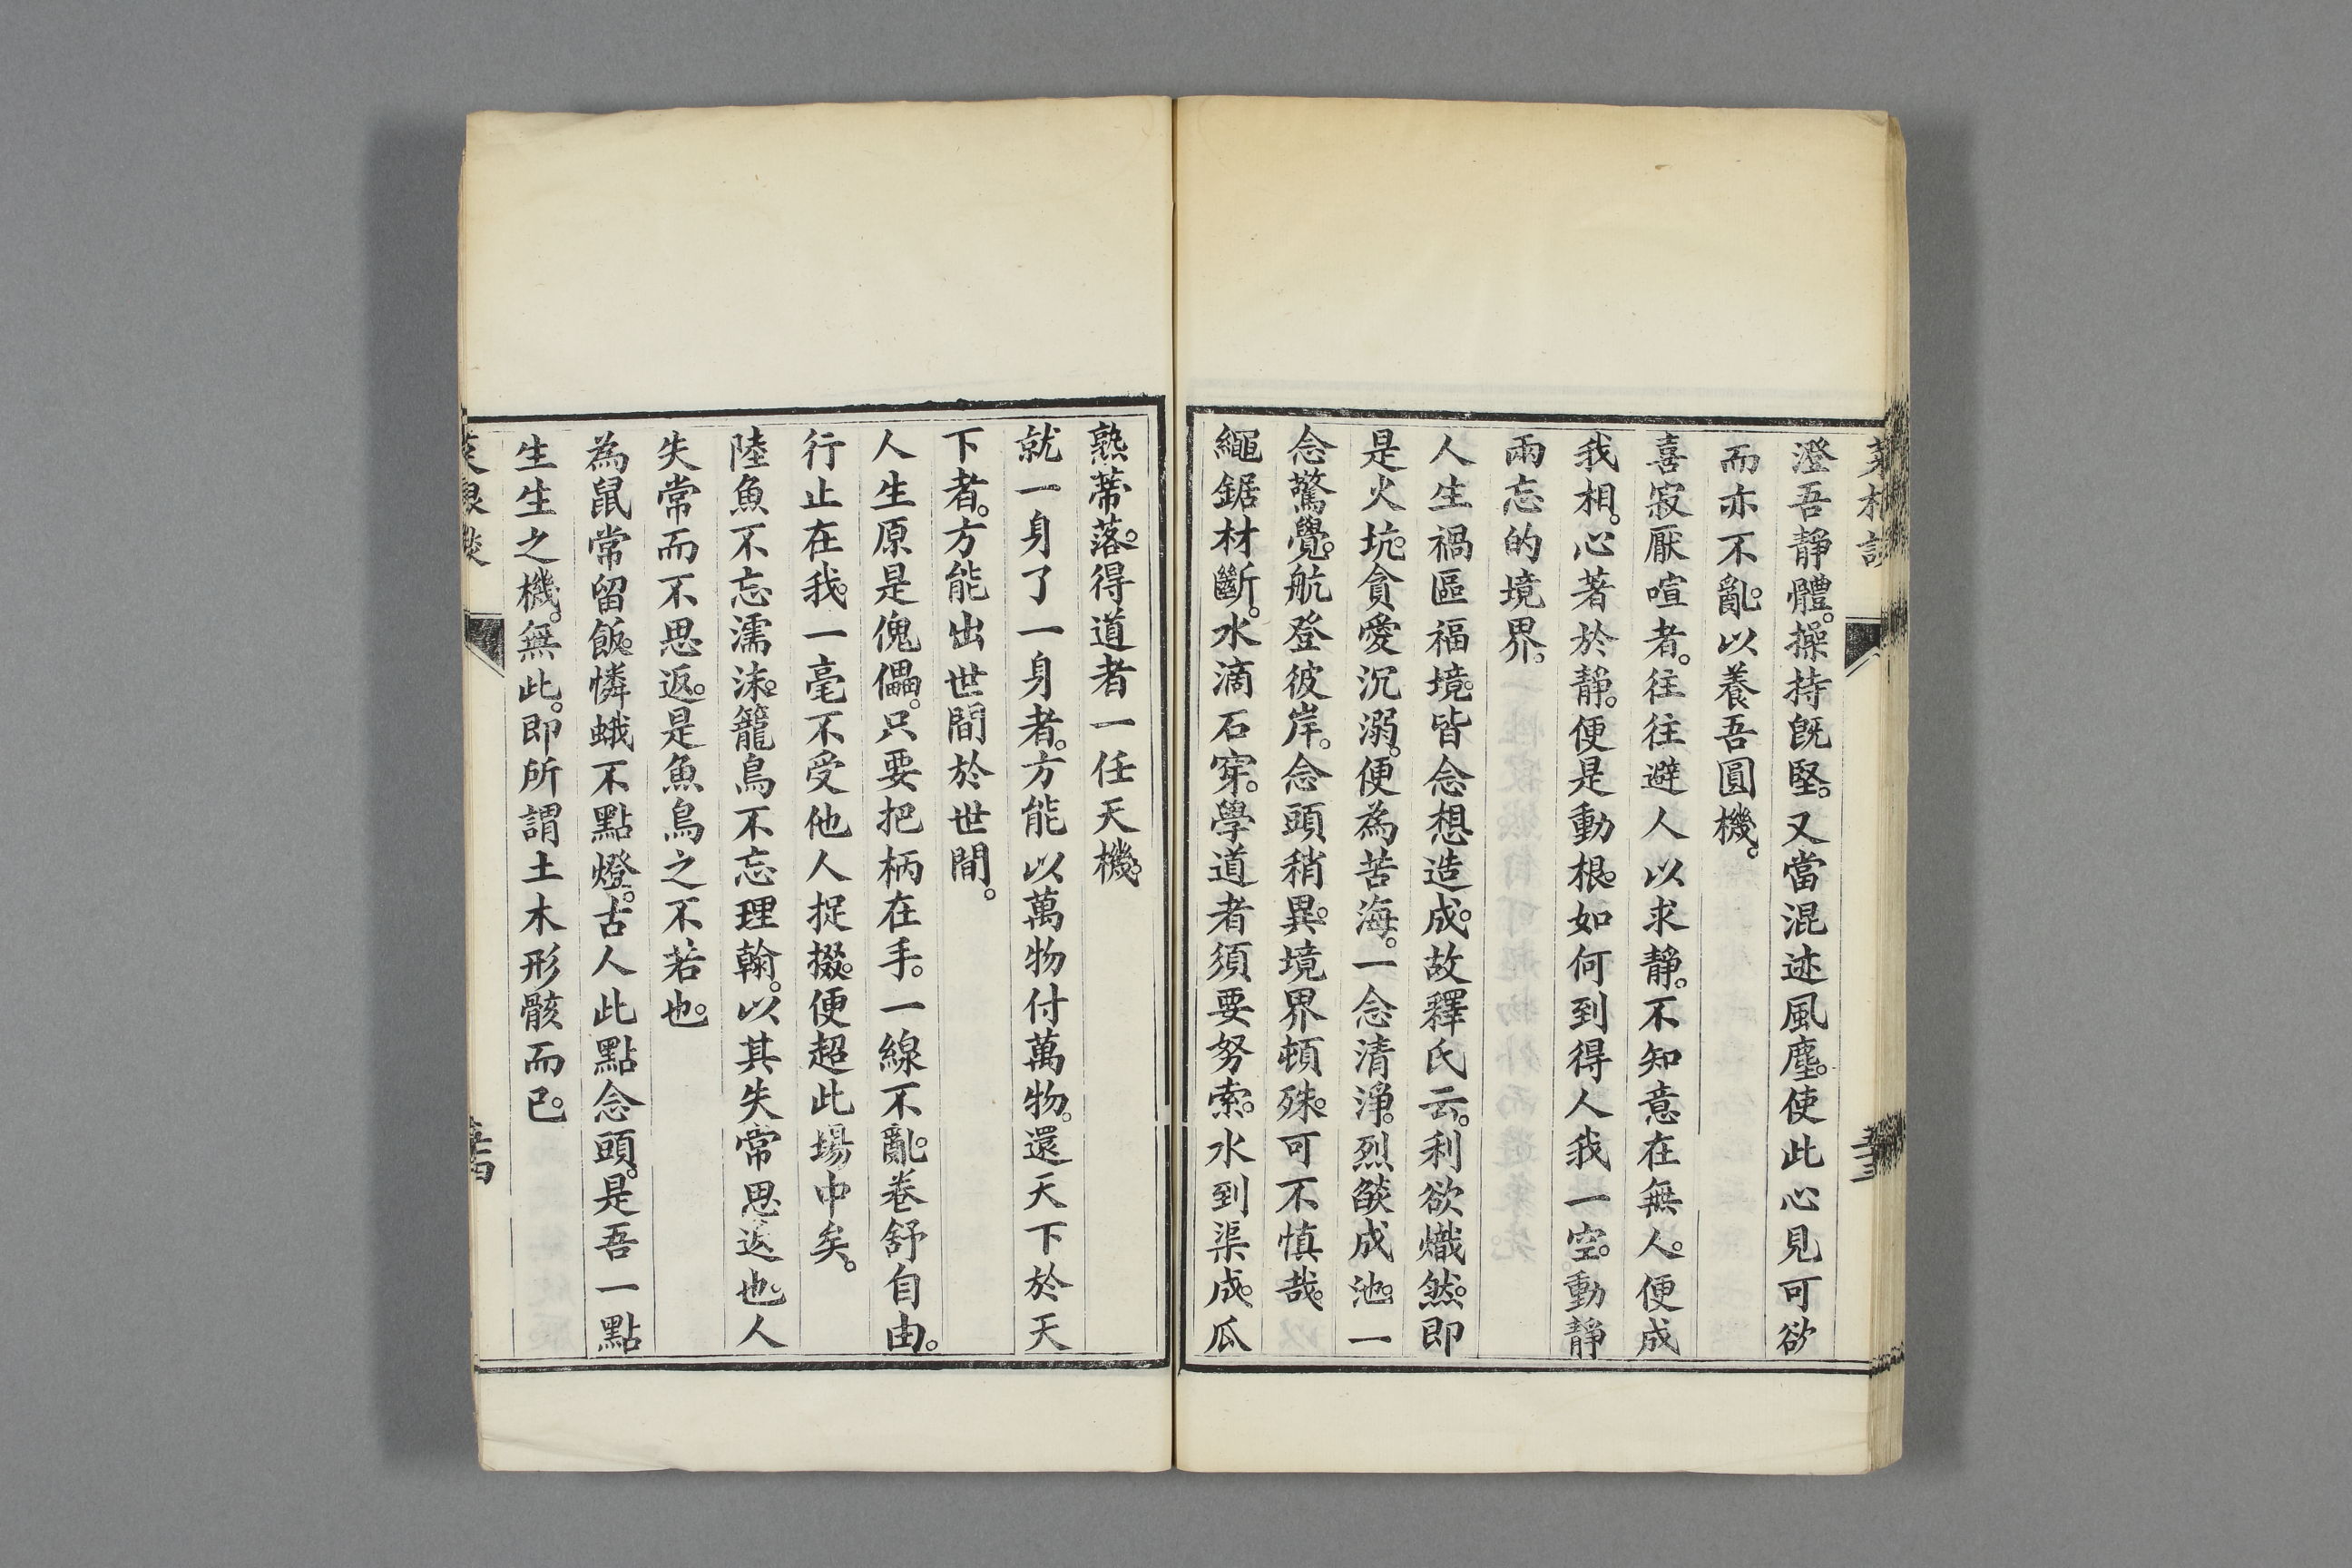 澄吾靜體。操持旣堅。又當混迹風塵。使此心見可欲
而亦不亂。以養吾圓機。
喜寂厭喧者。往往避人以求靜。不知意在無人。便成
我相。心著於靜。便是動根。如何到得人我一空。動靜
兩忘的境界。
人生禍區福境。皆念想造成。故釋氏云。利欲熾然。即
是火坑。貪愛沉溺。便為苦海。一念清淨。烈燄成池。一
念驚覺。航登彼岸。念頭稍異。境界頓殊。可不慎哉。
繩鋸材斷。水滴石穿。學道者須要努索。水到渠成。瓜
熟蒂落。得道者一任天機。
就一身了一身者。方能以萬物付萬物。還天下於天
下者。方能出世間於世間。
人生原是傀儡。只要把柄在手。一線不亂。卷舒自由。
行止在我。一毫不受他人捉掇。便超此場中矣。
陸魚不忘濡沫。籠鳥不忘理翰。以其失常思返也。人
失常而不思返。是魚鳥之不若也。
為鼠常留飯。憐蛾不點燈。古人此點念頭。是吾一點
生生之機。無此。即所謂土木形骸而已。